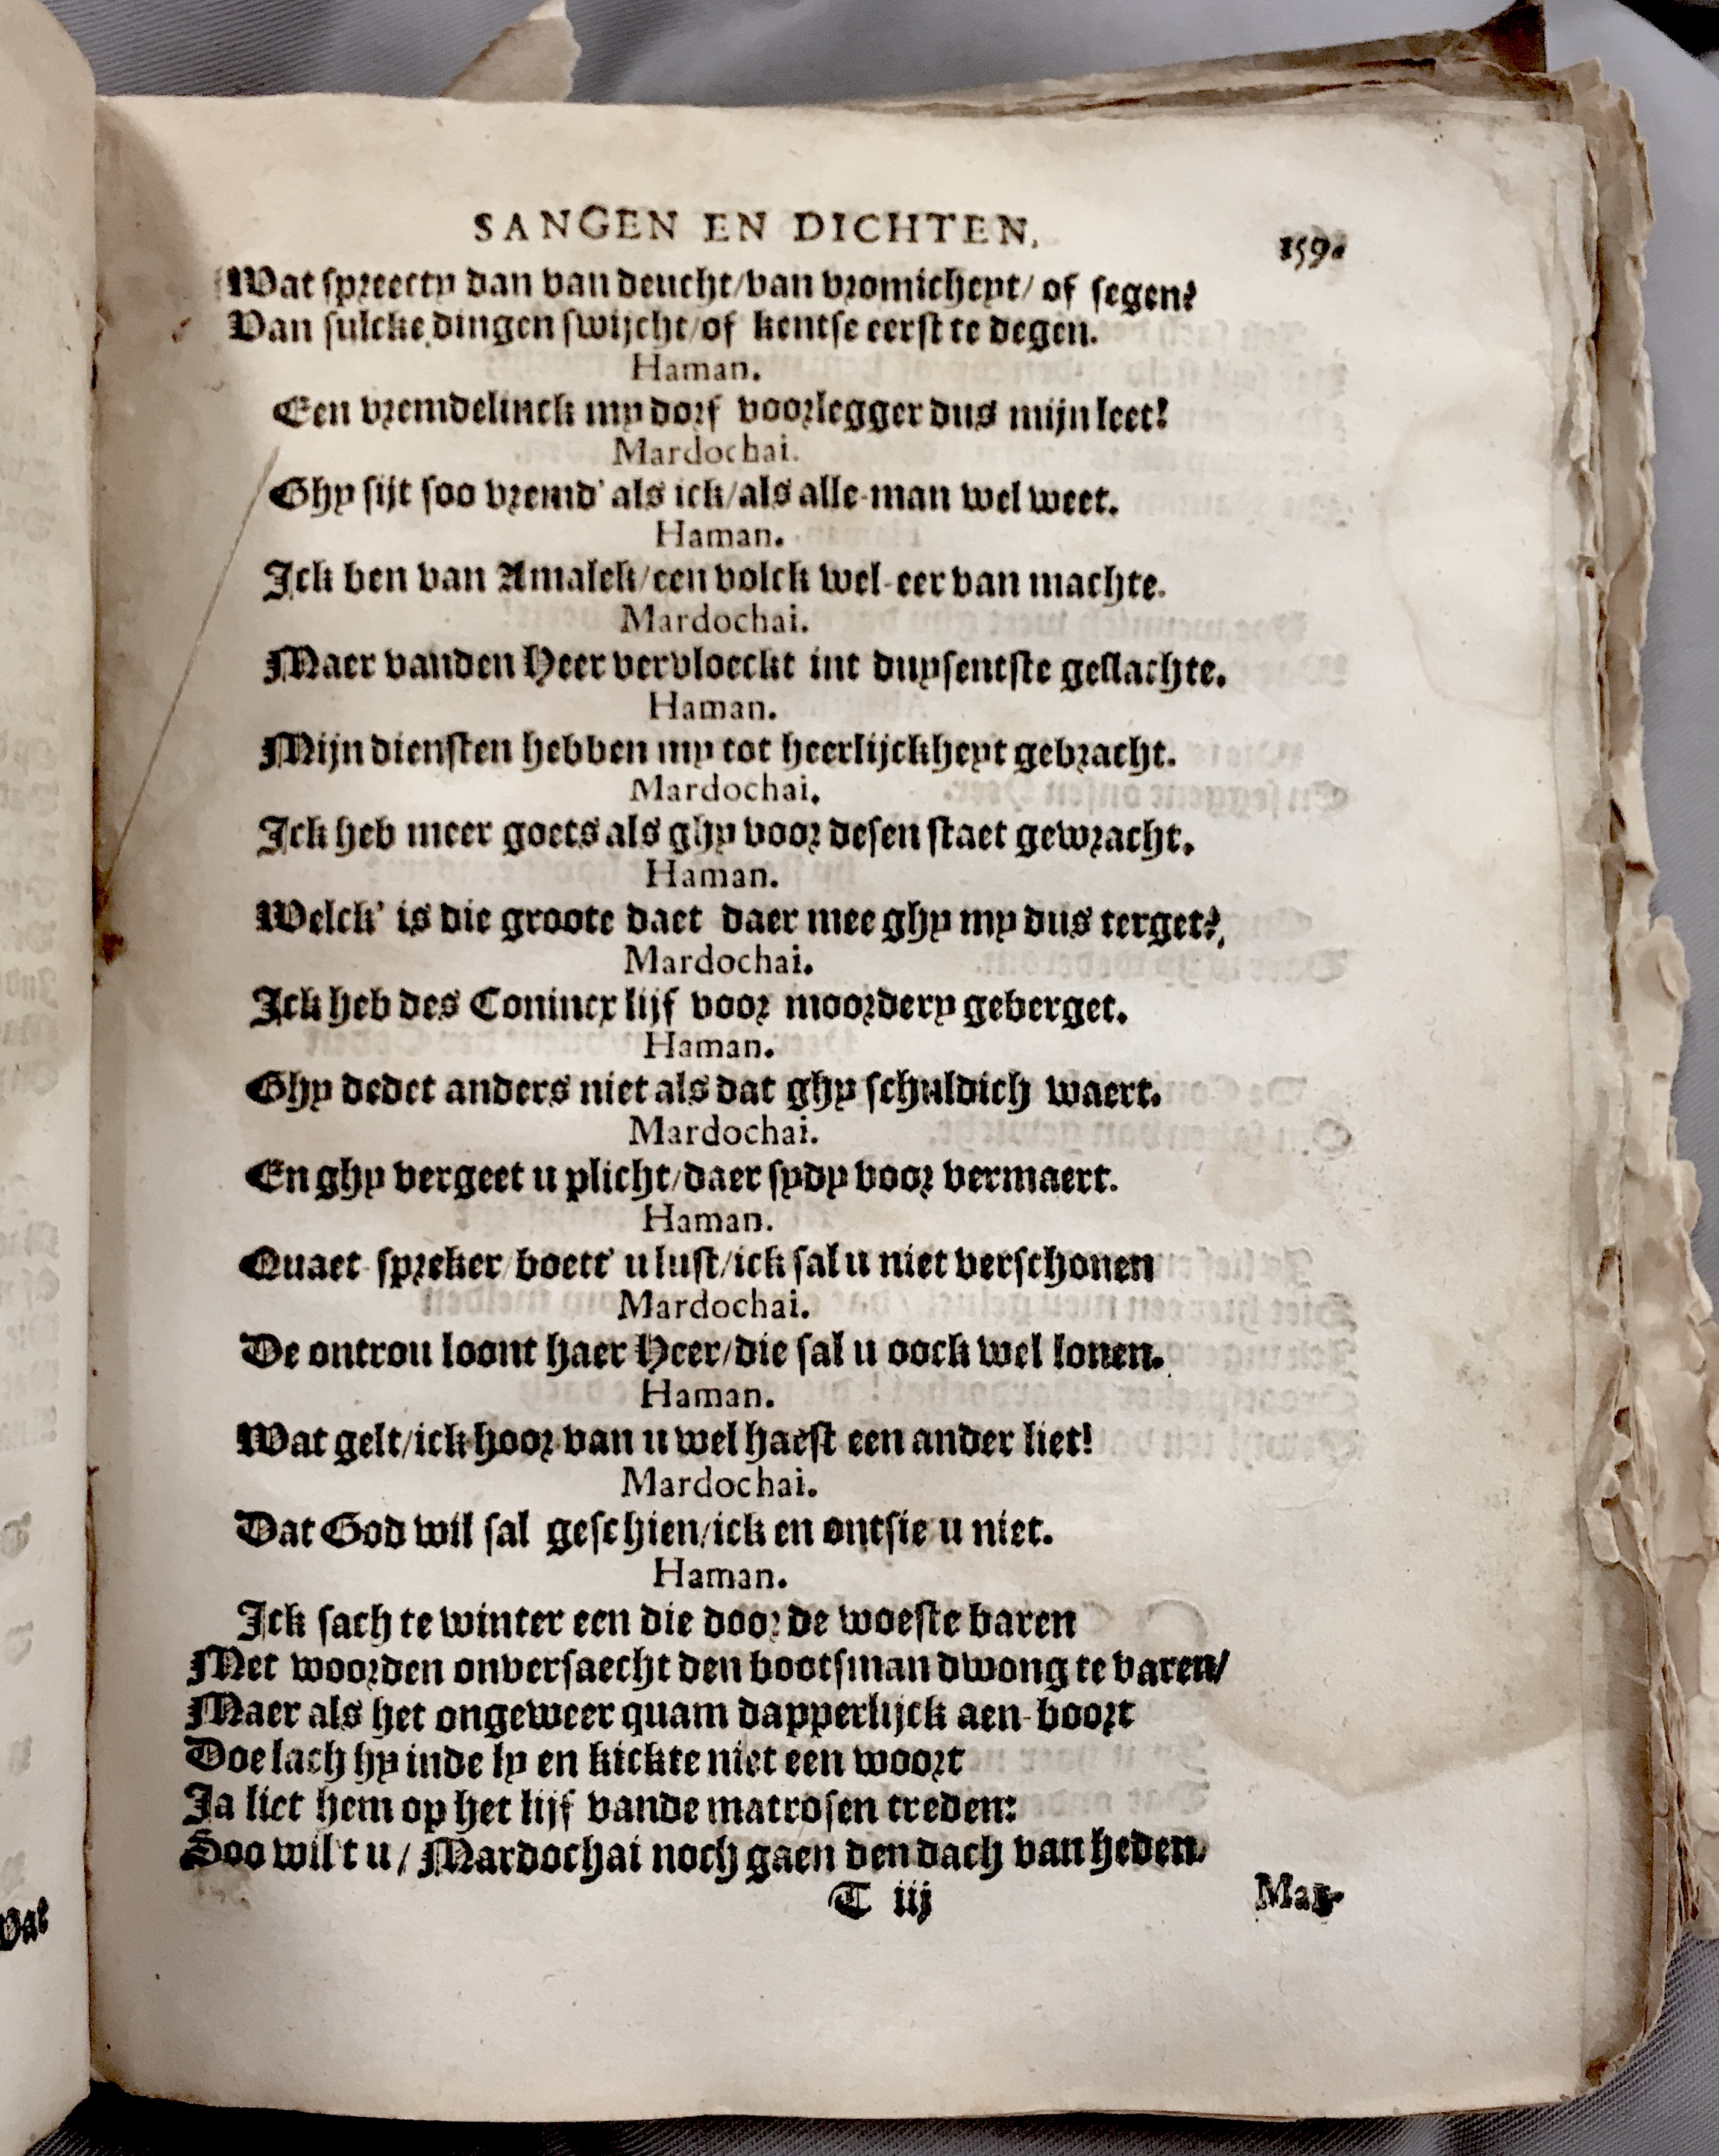 SANGEN EN DICHTEN, 159.
Wat spreecty dan van deucht/van vromicheyt/ of segen?
Van sulcke dingen swijcht/of kentse eerst te degen.
Haman.
Een vremdelinck my dorf voorlegger dus mijn leet!
Mardochai.
Ghy sijt soo vremd' als ick/als alle-man wel weet.
Haman.
Ick ben van Amalek/een volck wel-eer van machte.
Mardochai.
Maer vanden Heer vervloeckt int duysentste geslachte.
Haman.
Mijn diensten hebben my tot heerlijckheyt gebracht.
Mardochai.
Ick heb meer goets als ghy voor desen staet gewracht.
Haman.
Welck' is die groote daet daer mee ghy my dus terget?
Mardochai.
Ick heb des Conincx lijf voor moordery geberget.
Haman.
Ghy dedet anders niet als dat ghy schuldich waert.
Mardochai.
En ghy vergeet u plicht/daer sydy voor vermaert.
Haman.
Quaet-spreker/boett' u lust/ick sal u niet verschonen
Mardochai.
De ontrou loont haer Heer/die sal u oock wel lonen.
Haman.
Wat gelt/ick hoor van u wel haest een ander liet!
Mardochai.
Dat God wil sal geschien/ick en ontsie u niet.
Haman.
Ick sach te winter een die door de woeste baren
Met woorden onversaecht den bootsman dwong te varen/
Maer als het ongeweer quam dapperlijck aen-boort
Doe lach hy inde ly en kickte niet een woort
Ja liet hem op het lijf vande matrosen treden:
Soo wil't u/ Mardochai noch gaen den dach van heden/
T iij